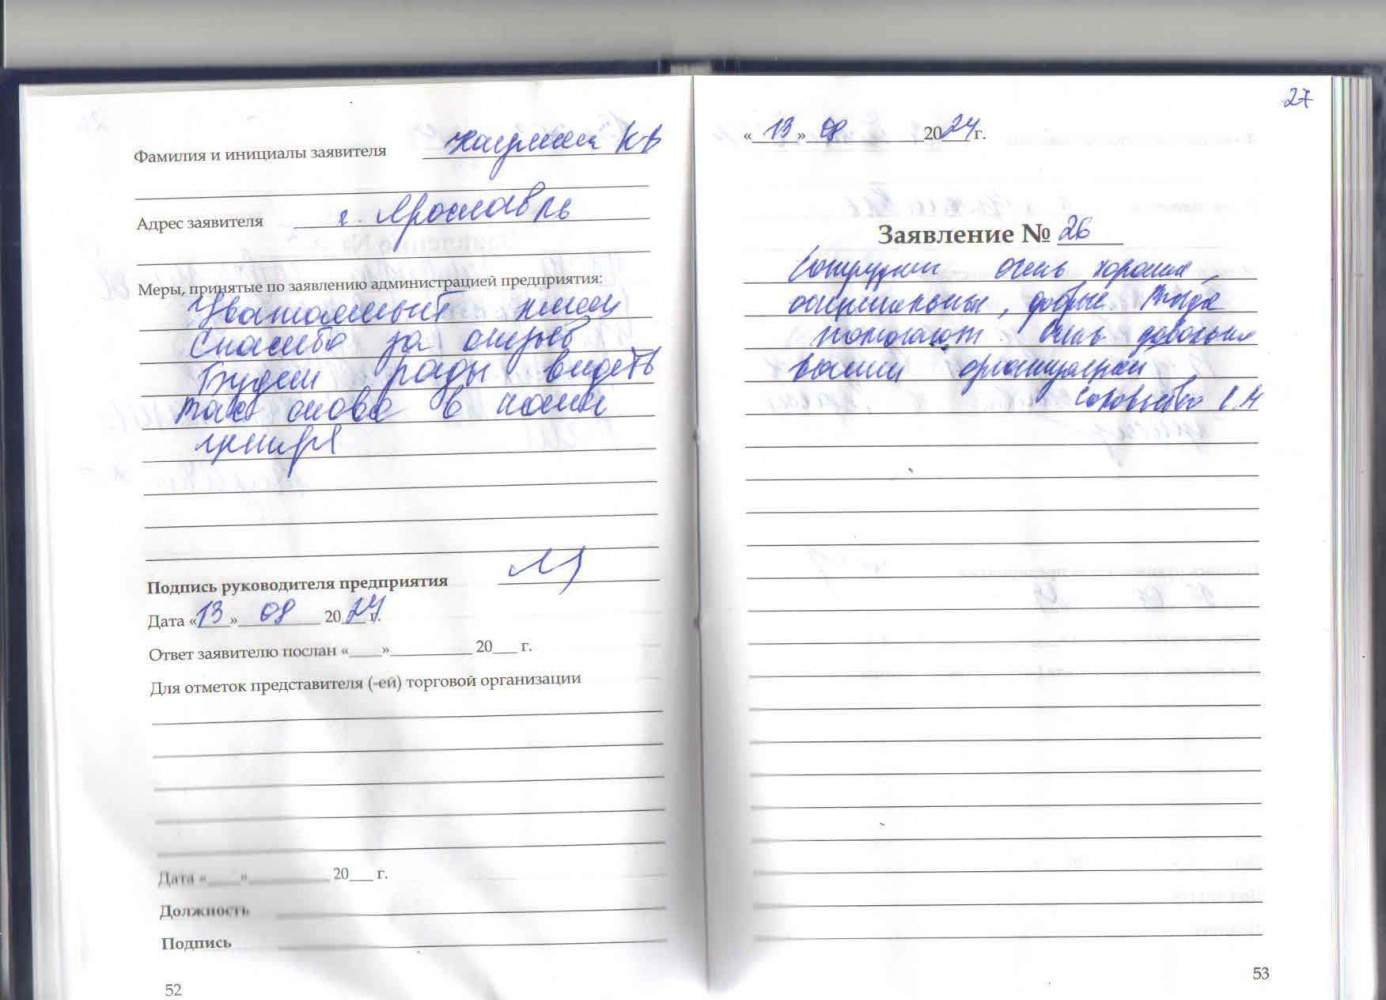 Фамилия и инициалы заявителя КВ
Адрес заявителя г. Ярославль
Меры, принятые по заявлению администрацией предприятия:
Уважаемый
Спасибо за отзыв
Будем рады видеть
Вас снова в нашем
центре
Подпись руководителя предприятия
Дата «13» 08 2024 г.
Ответ заявителю послан «____»__________ 20___ г.
Для отметок представителя (-ей) торговой организации
Дата «____»__________ 20___ г.
Должность
Подпись
52
27
«13» 08 2024г.
Заявление № 26
очень хорошие,
добрые всегда
помогают. Очень довольна
вашей организацией
Соловьева С.Н
53